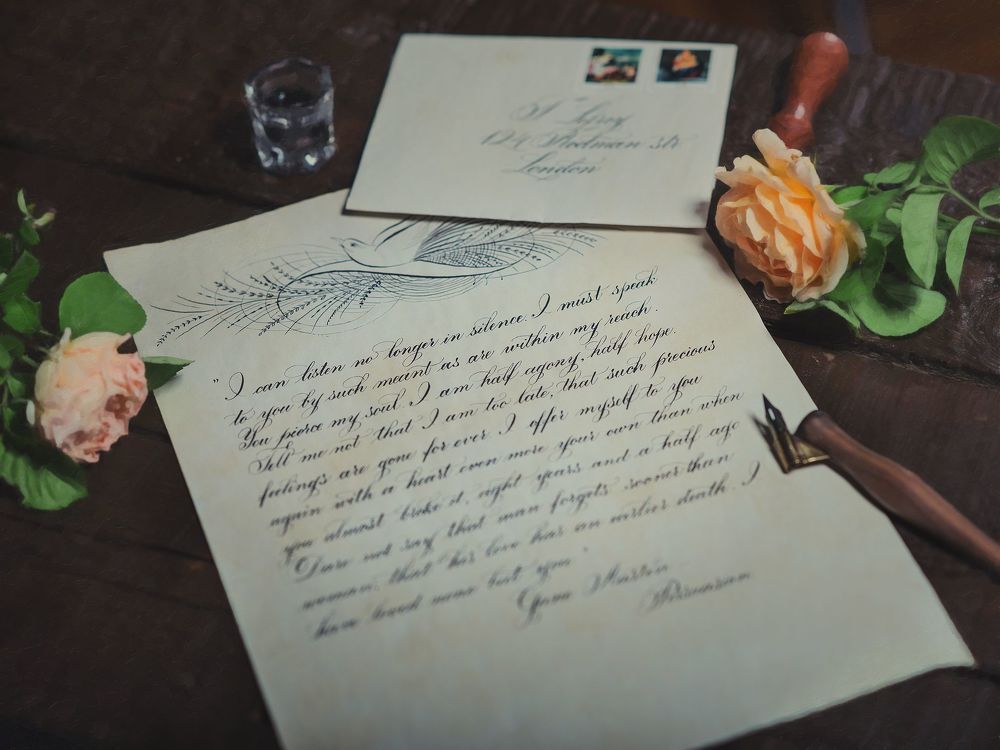 T Lefroy
London
" I can listen no longer in silence. I must speak
to you by such meant as are within my reach.
You pierce my soul. I am half agony, half hope.
Tell me not that I am too late, that such precious
feelings are gone for ever. I offer myself to you
again with a heart even more your own than when
you almost broke it, eight years and a half ago
Dare not say that man forgets sooner than
woman, that his love has an earlier death. I
have loved none but you "